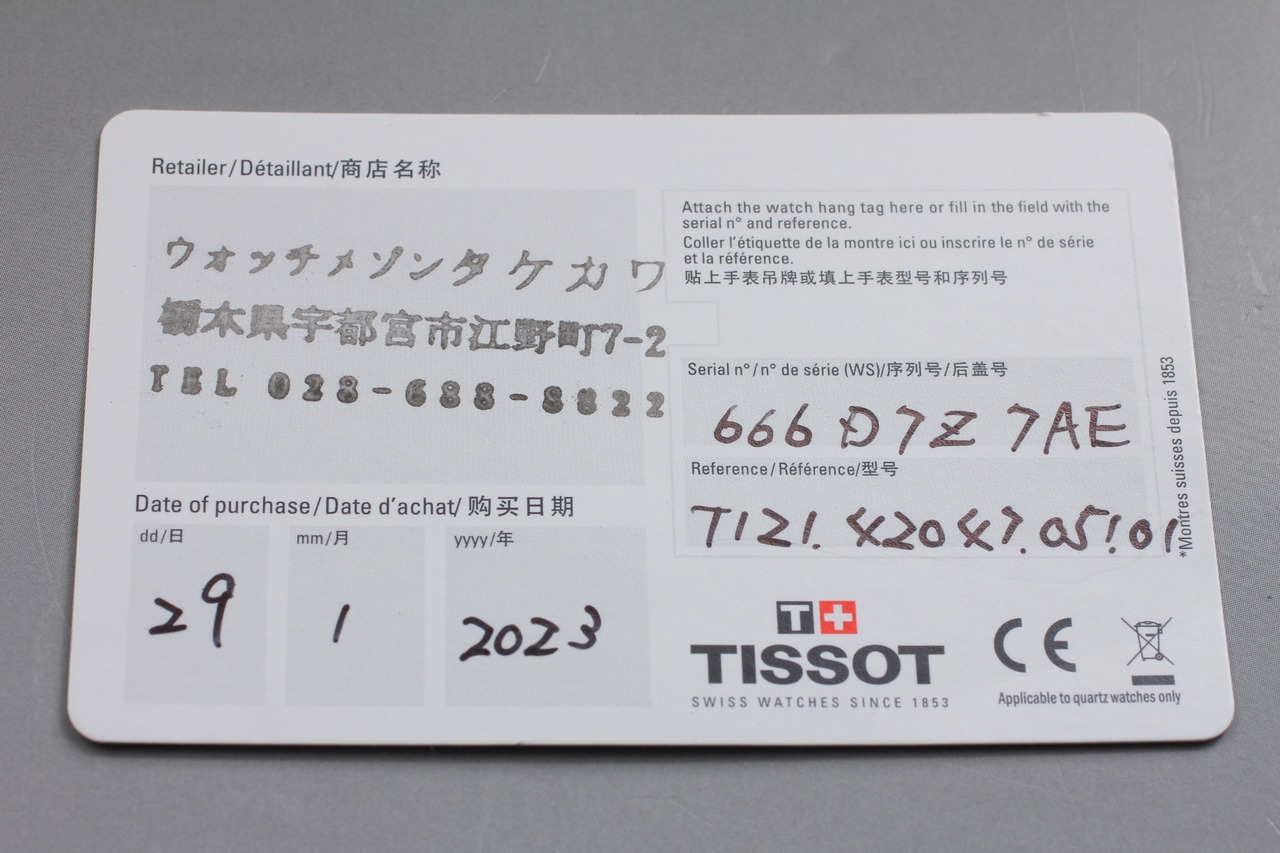 Retailer/Détaillant/商店名称
ウォッチメゾンタケカワ
栃木県宇都宮市江野町7-2
TEL 028-688-8822
Date of purchase/Date d'achat/购买日期
dd/日
mm/月
yyyy/年
29
1
2023
Attach the watch hang tag here or fill in the field with the
serial n° and reference.
Coller l'étiquette de la montre ici ou inscrire le n° de série
et la référence.
贴上手表吊牌或填上手表型号和序列号
Serial n°/n° de série (WS)/序列号/后盖号
666 D7Z 7AE
Reference/Référence/型号
T121.42047.051.01
*Montres suisses depuis 1853
T+
TISSOT
SWISS WATCHES SINCE 1853
CE
Applicable to quartz watches only